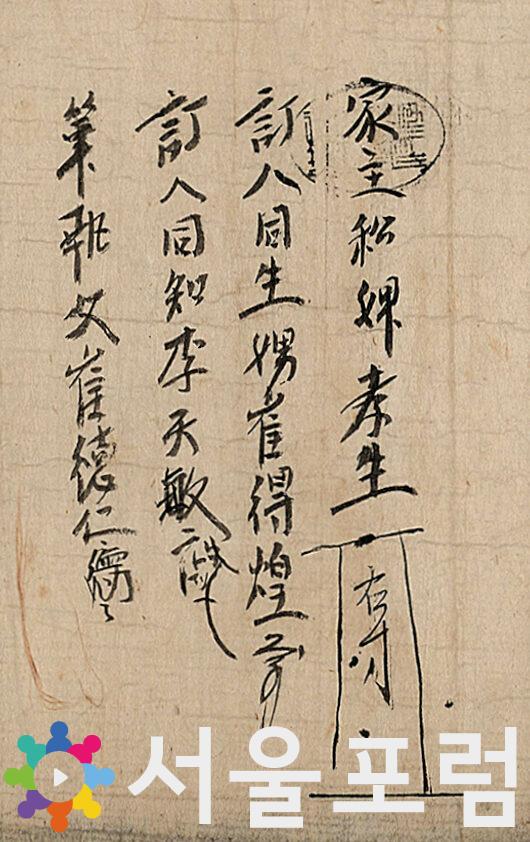 家主私婢孝生 右寸
訂人同生娚崔得煌
訂人同知李天敏
筆執父崔德仁
서울포럼